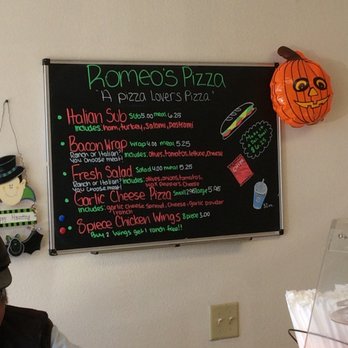 Romeo's Pizza
"A pizza Lovers Pizza"
Italian Sub Sub 5.00 meal 6.28
Includes: ham, turkey, salami, pastrami
Bacon Wrap Wrap 4.00 meal 5.25
Ranch or Italian! Includes: olives, tomatos, lettuce, cheese
You Choose meat!
Fresh Salad Salad 4.00 meal 5.25
Ranch or Italian! Includes: olives, onions, tomatos,
You Choose meat!
Garlic Cheese Pizza Small 2.95 large 5.95
includes: garlic cheese spread, cheese, garlic powder
ranch
5 piece Chicken Wings 5 piece 5.00
Buy 2 wings get 1 ranch free!!